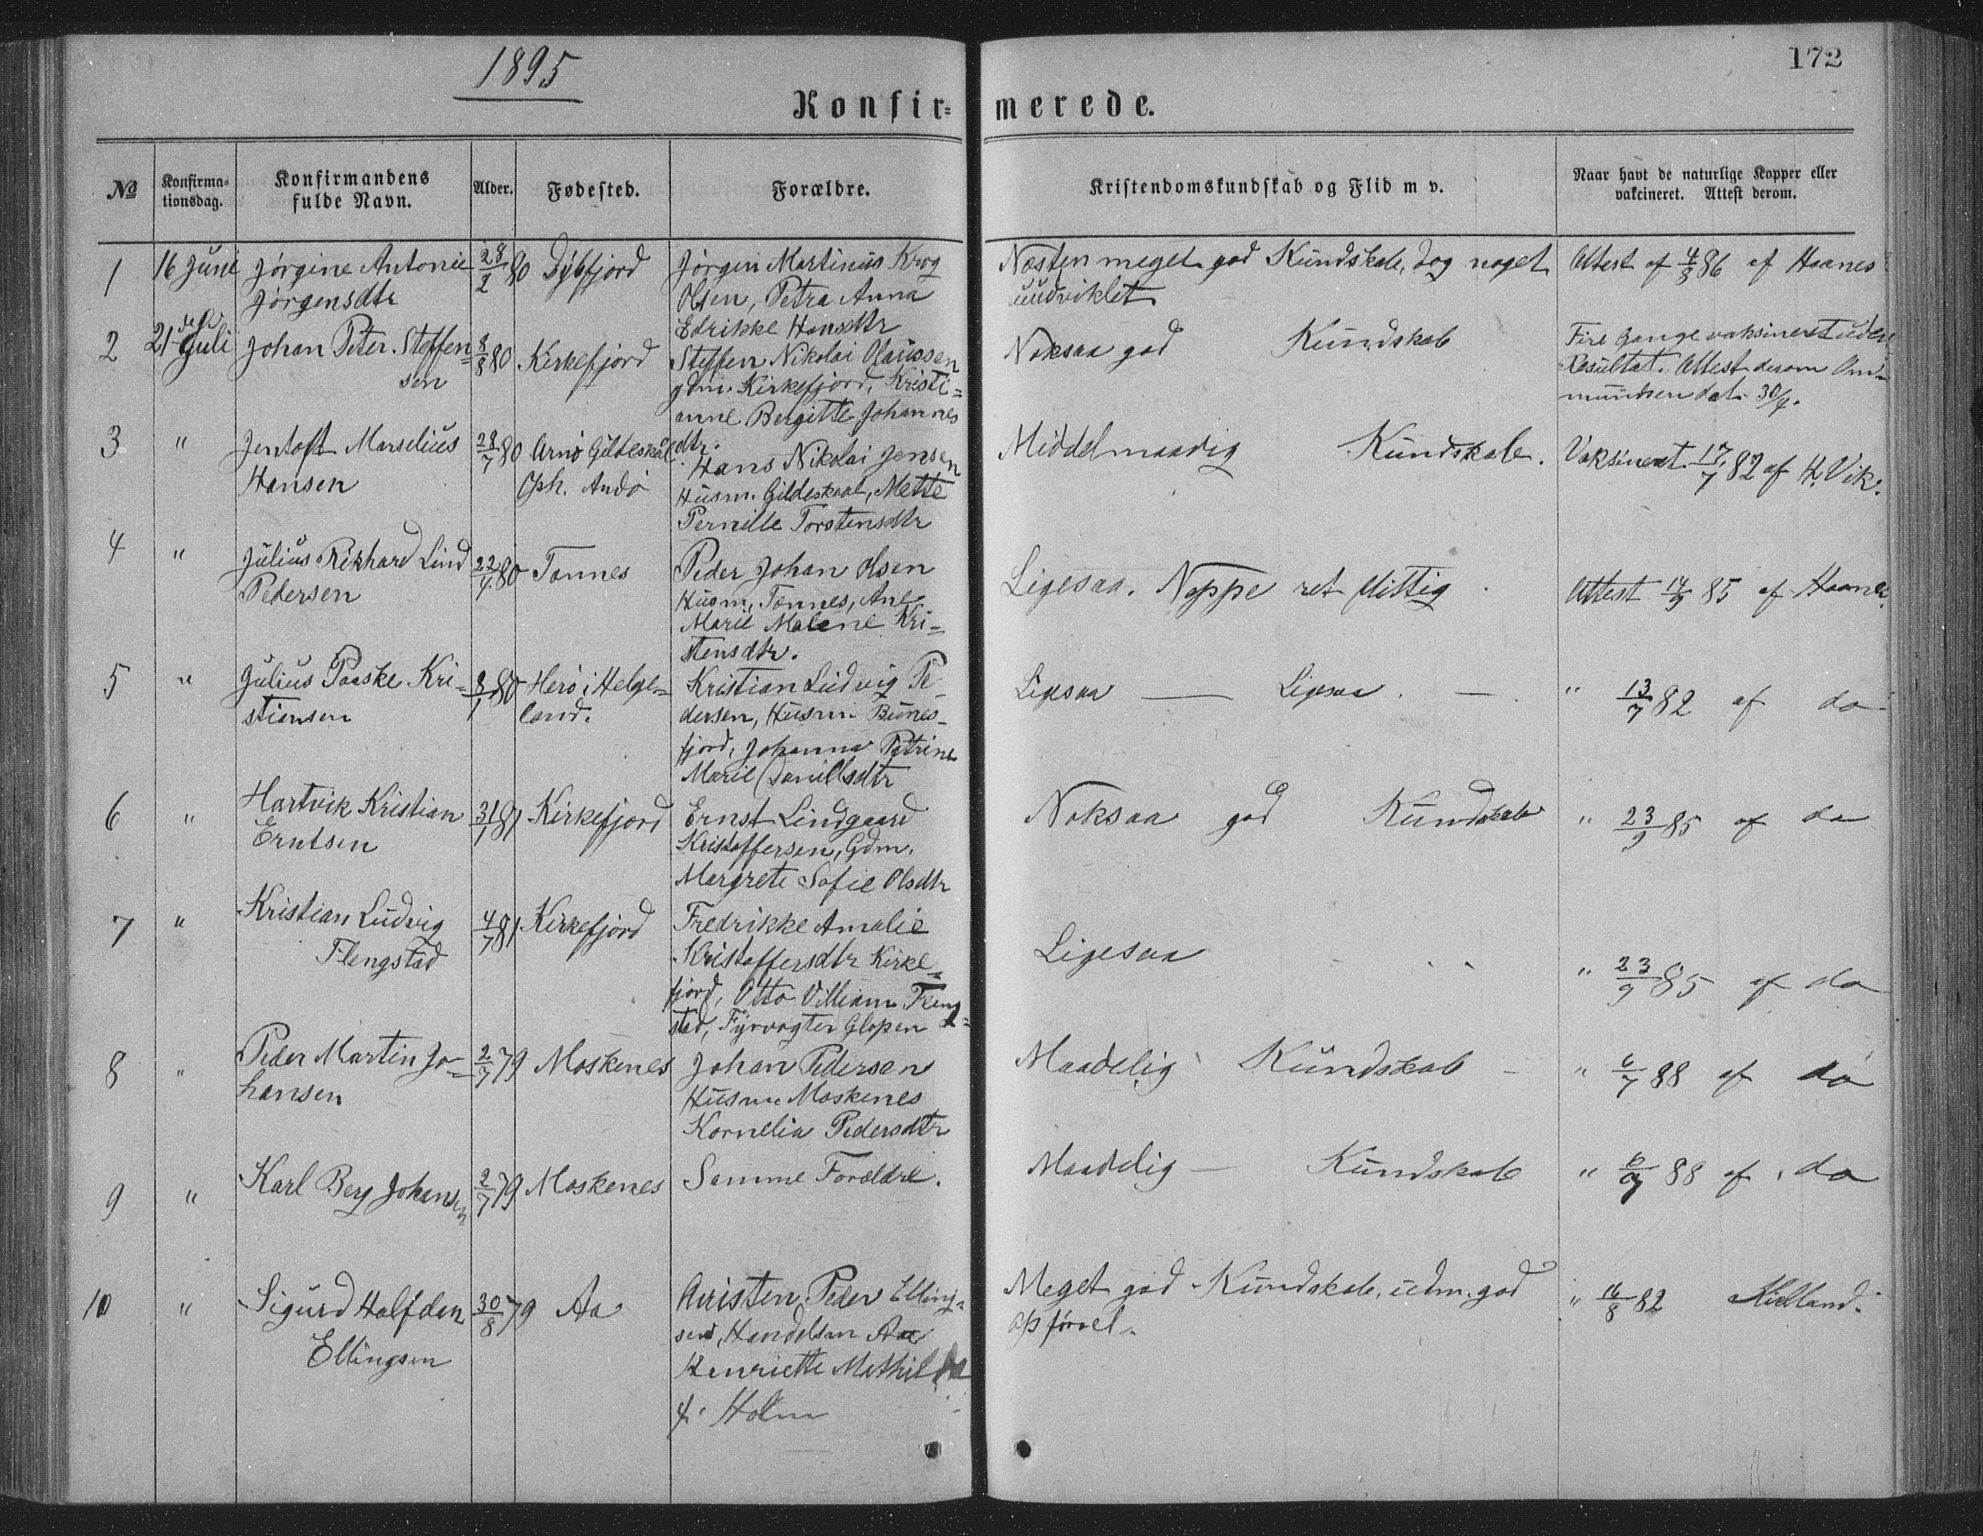 1895
172
Konfir=
merede.
№
Konfirma-
tionsdag.
Konfirmandens
fulde Navn.
Alder.
Fødested.
Forældre.
Kristendomskundskab og Flid m v.
Naar havt de naturlige Kopper eller
vakcineret. Attest derom.
1
16 Juni
Jørgine Antonie
Jørgensdtr
28/2 80
Dybfjord
Jørgen Martinus Krog
Olsen, Petra Anna
Edrikke Hansdtr
Næsten meget god Kundskab, dog noget
uudviklet
Attest af 4/8 86 af Haanes
2
21 Juli
Johan Peter Steffen
sen
8/8 80
Kirkefjord
Steffen Nikolai Olaussen
gdm. Kirkefjord, Kristi=
anne Bergitte Johannes
dtr.
Noksaa god Kundskab
Fire Gange vaksineret uden
Resultat. Attest derom Am-
mundsen dat. 30/4.
3
"
Jentoft Marselius
Hansen
28/7 80
Arnø Gildeskaal
Oph. Andø
Hans Nikolai Jensen
Husm. Gildeskaal, Mette
Pernille Torstensdtr
Middelmaadig Kundskab.
Vaksineret 17/7 82 af H. Vik.
4
"
Julius Rikhard Lind
Pedersen
22/4 80
Tonnes
Peder Johan Olsen
Husm, Tonnes, Ane
Marie Malene Kri=
stensdtr.
Ligesaa. Noppe ret flittig
Attest 14/9 85 af Haanes
5
"
Julius Paaske Kri=
stiansen
8/1 80
Herø i Helge=
land.
Kristian Ludvig Pe-
dersen, Husm Bunes-
fjord, Johanna Petrine
Marie Danielsdtr
Ligesaa — Ligesaa. —
" 13/7 82 af do
6
"
Hartvik Kristian
Erntsen
31/1 81
Kirkefjord
Ernst Lindgaard
Kristoffersen, Gdm.
Margrete Sofie Olsdtr
Noksaa god Kundskab
" 23/9 85 af do
7
"
Kristian Ludvig
Flengstad
4/7 81
Kirkefjord
Fredrikke Amalie
Kristoffersdtr Kirke=
fjord, Otto Villiam Fleng
stad, Fyrvogter Glopen
Ligesaa
" 23/9 85 af do
8
"
Peder Martin Jo=
hansen
2/7 79
Moskenes
Johan Pedersen
Husm Moskenes
Kornelia Pedersdtr
Maadelig Kundskab -
" 6/7 88 af do
9
"
Karl Berg Johansen
2/7 79
Moskenes
Samme Forældre.
Maadelig — Kundskab
" 88 af do
10
"
Sigurd Halfdan
Ellingsen
30/8 79
Aa
Peder Elling=
sen, Handelsm Aa
Henriette Mathilda
f. Holm
Meget god Kundskab, udm. god
opførsel.
" 16/8 82 Kielland.